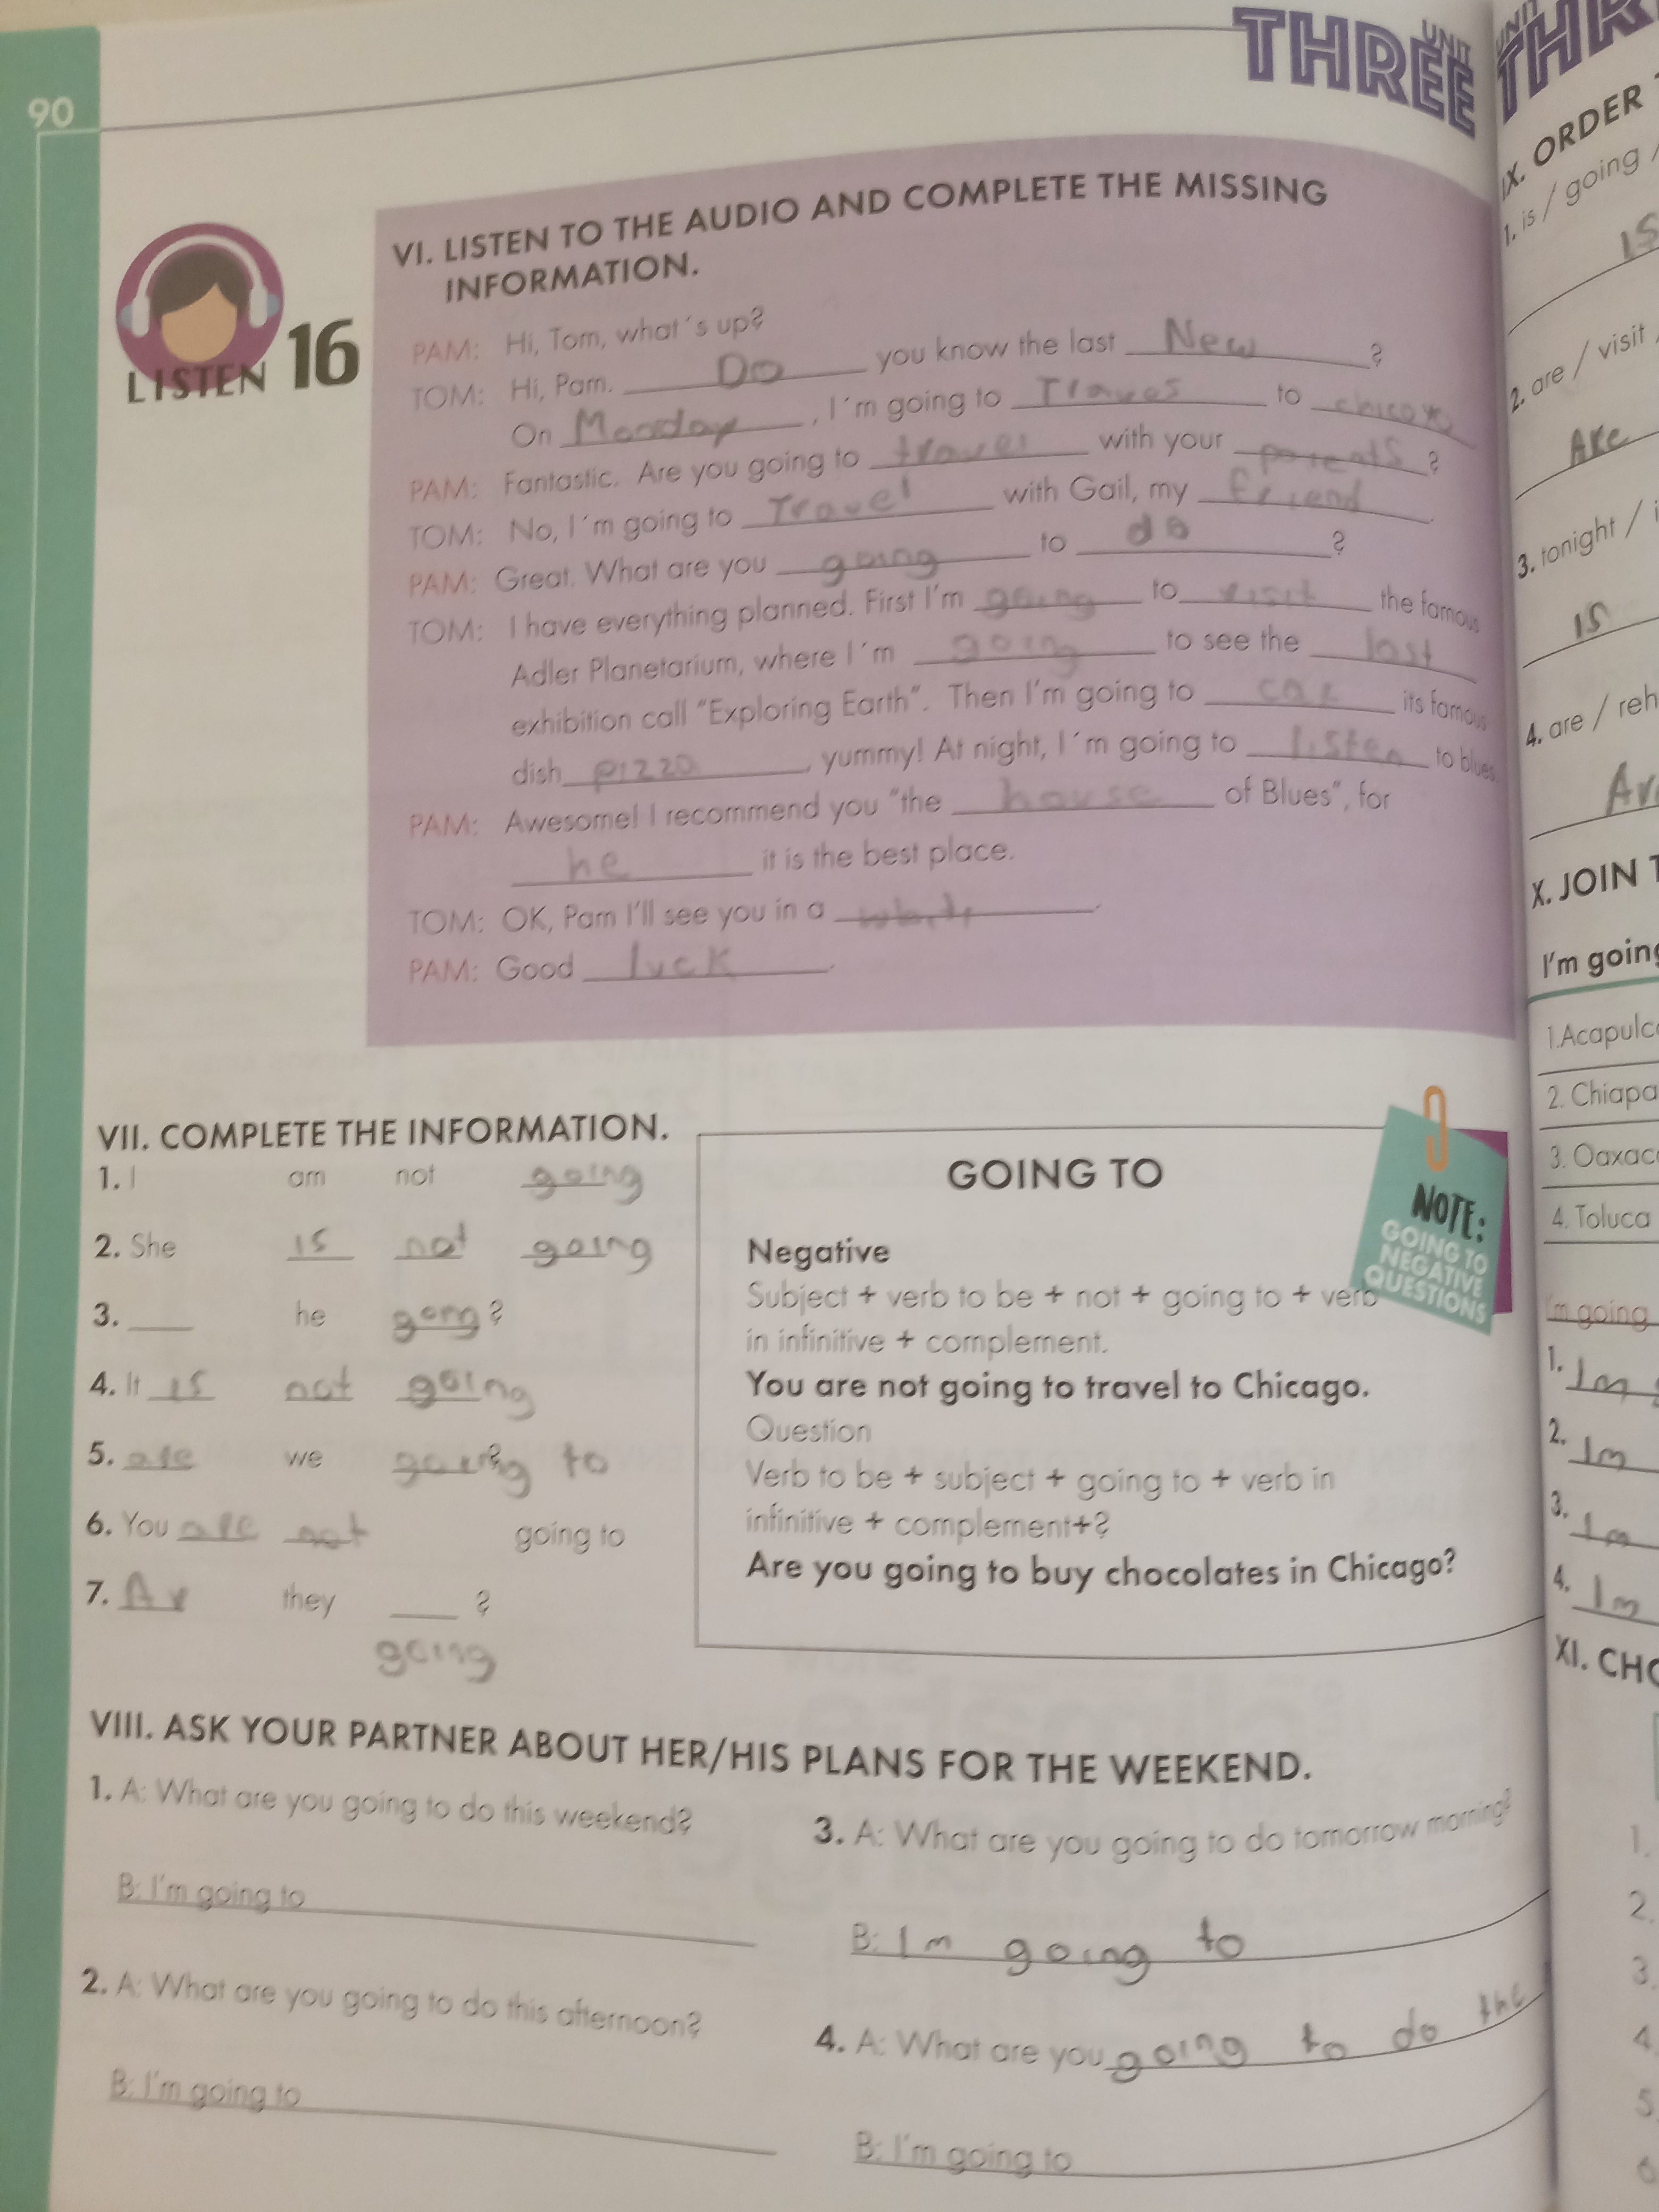 90
UNIT
THREE
LISTEN 16
VI. LISTEN TO THE AUDIO AND COMPLETE THE MISSING
INFORMATION.
PAM: Hi, Tom, what´s up?
TOM: Hi, Pam. Do you know the last New ?
On Monday , I´m going to to
PAM: Fantastic. Are you going to travel with your parents ?
TOM: No, I´m going to Travel with Gail, my friend .
PAM: Great. What are you going to do ?
TOM: I have everything planned. First I'm going to visit the famous
Adler Planetarium, where I´m going to see the last
exhibition call "Exploring Earth". Then I'm going to its famous
dish pizza , yummy! At night, I´m going to listen to blues.
PAM: Awesome! I recommend you "the house of Blues", for
he it is the best place.
TOM: OK, Pam I'll see you in a .
PAM: Good luck .
VII. COMPLETE THE INFORMATION.
1. I am not going
2. She is not going
3. he gong ?
4. It is not going
5. are we going ? to
6. You are not going to
7. Ar they ?
going
GOING TO
Negative
Subject + verb to be + not + going to + verb
in infinitive + complement.
You are not going to travel to Chicago.
Question
Verb to be + subject + going to + verb in
infinitive + complement+?
Are you going to buy chocolates in Chicago?
NOTE:
GOING TO
NEGATIVE
QUESTIONS
VIII. ASK YOUR PARTNER ABOUT HER/HIS PLANS FOR THE WEEKEND.
1. A: What are you going to do this weekend?
B: I'm going to
2. A: What are you going to do this afternoon?
B: I'm going to
3. A: What are you going to do tomorrow morning?
B: Im going to
4. A: What are you going to do the
B: I'm going to
UNIT
IX. ORDER
1. is / going /
is
2. are / visit
Are
3. tonight /
is
4. are / reh
X. JOIN
I'm going
1.Acapulc
2. Chiapa
3. Oaxac
4. Toluca
I'm going
1. Im
2. Im
3. Im
4. Im
XI. CHO
1.
2.
3.
4.
5.
6.